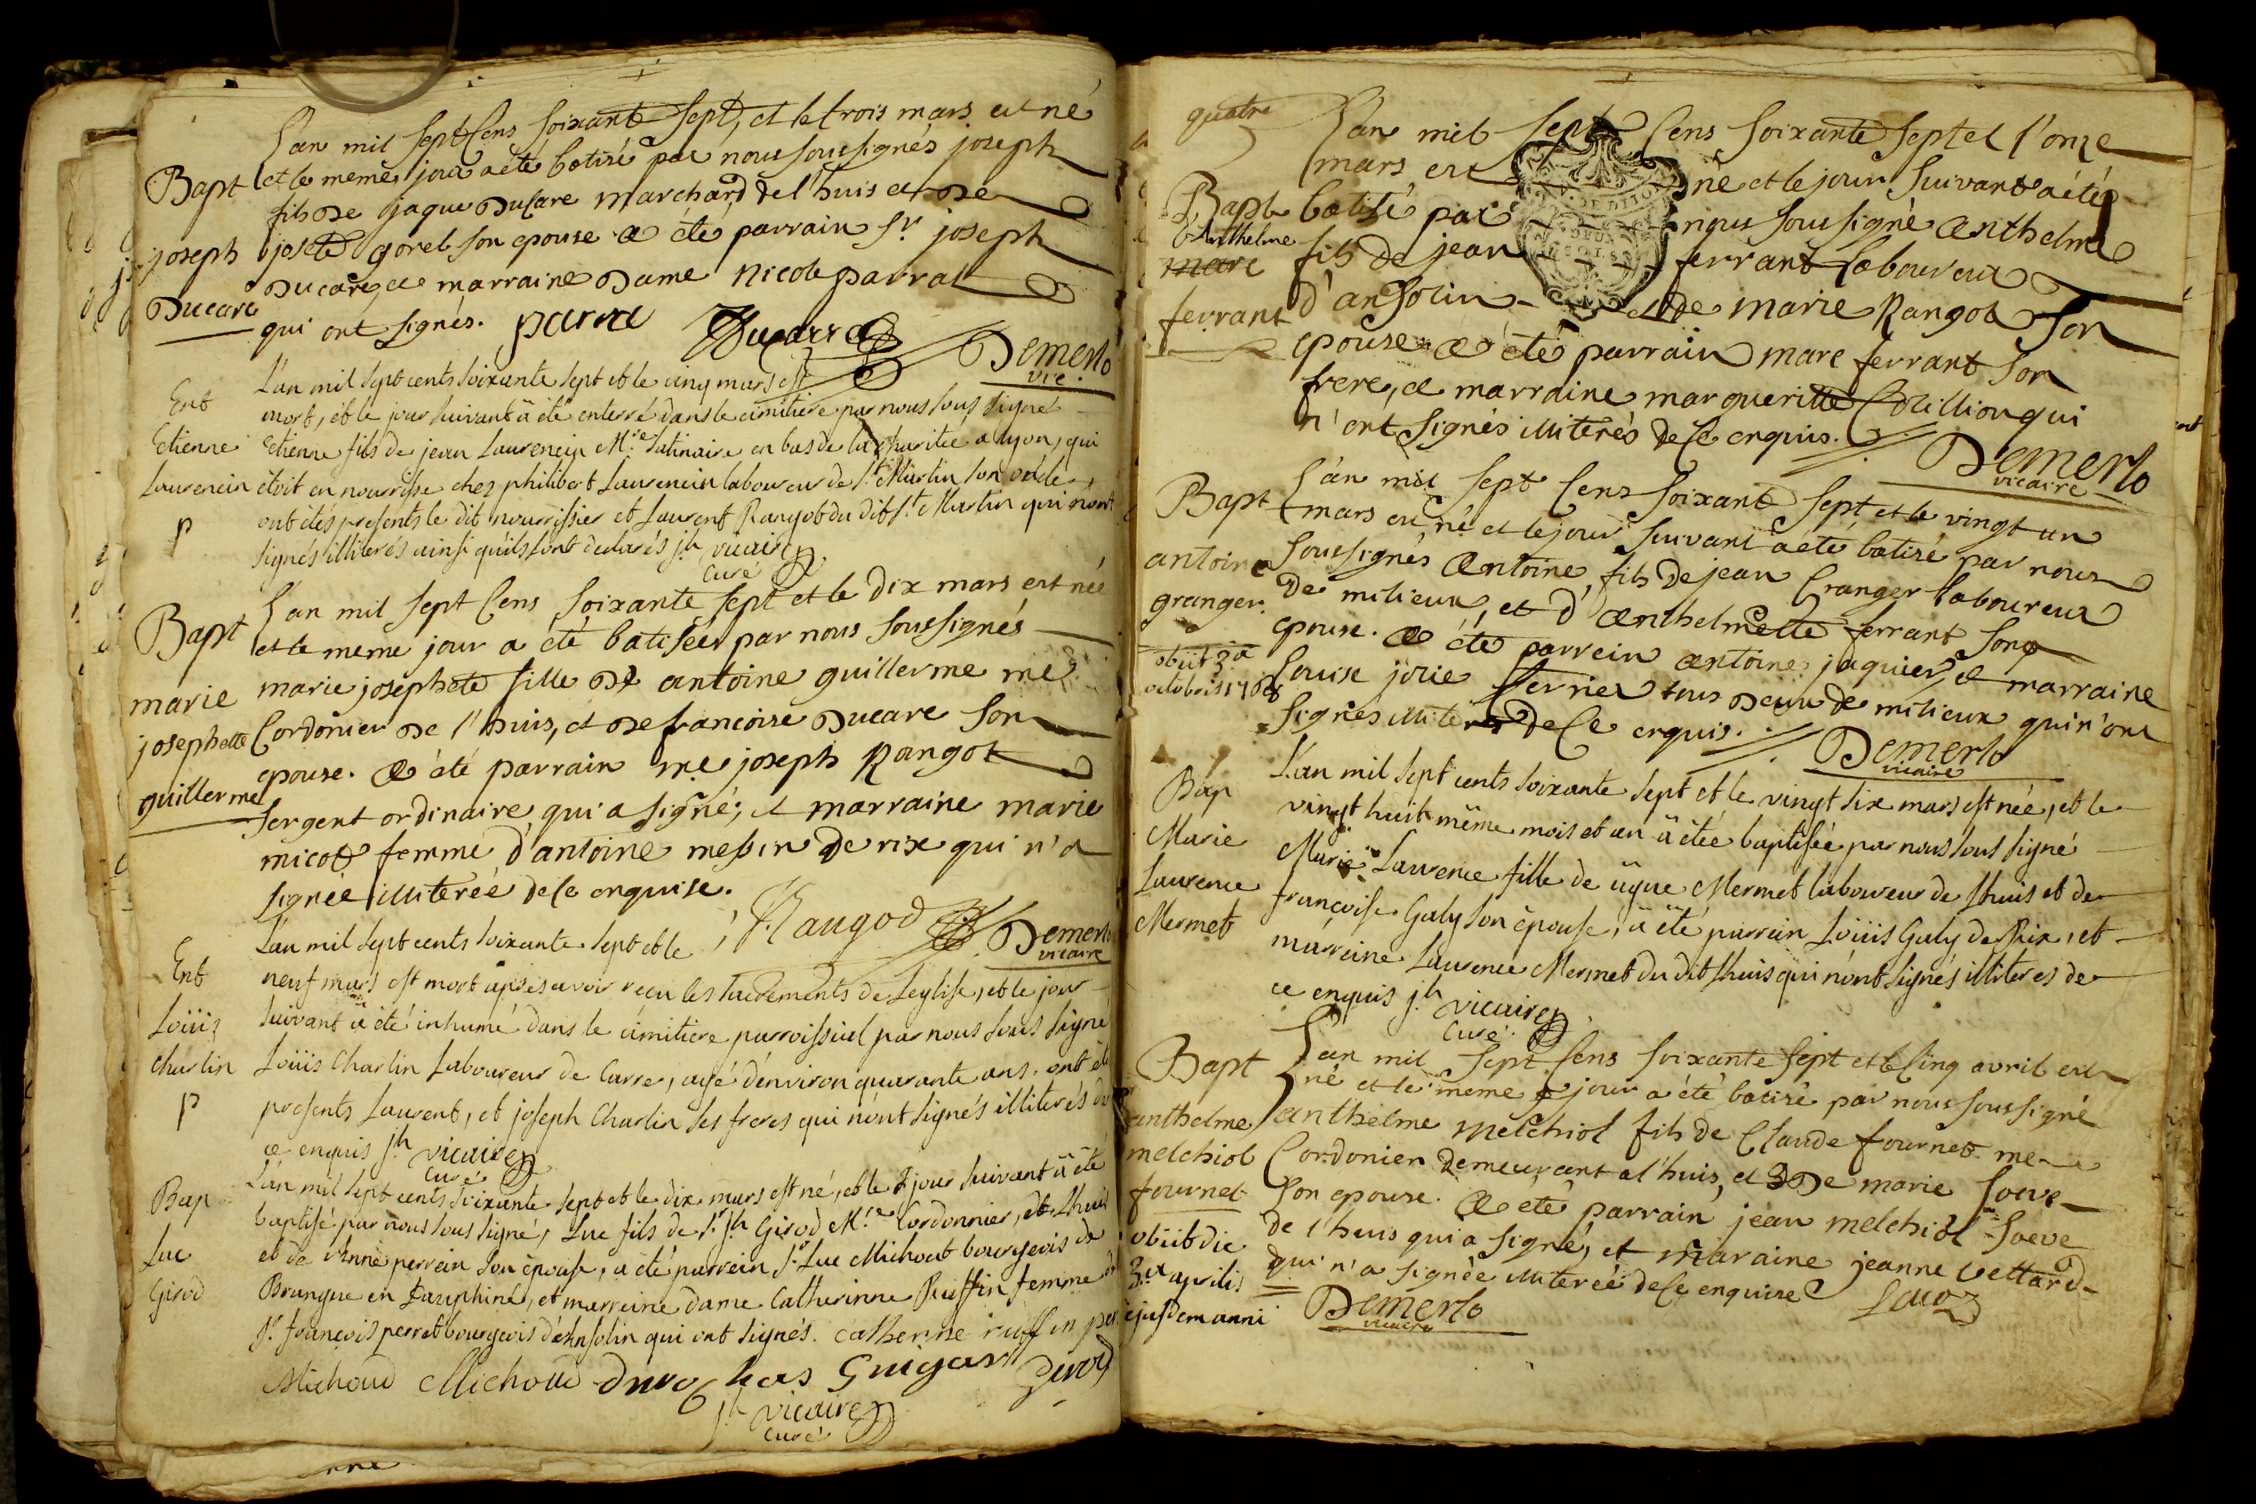 L'an mil sept Cens soixante sept, et le trois mars est né
Bapt et le meme jour a été batisé par nous soussignés joseph
fils de jaque Ducare marchard de l'huis et de
joseph josete gorel son epouse a été parrain Sr joseph
Ducare, et marraine Dame nicole parrat
Ducare qui ont signés. parra Ducarre
Demerlo
vic.
L'an mil sept cents soixante sept et le cinq mars est
Ent mort, et le jour suivant à été enterré dans le cimitiere par nous sous signé
Etienne Etienne fils de jean Laurencin Me Satinaire en bas de la charitée a lyon, qui
Laurencin étoit en nourrisse chez philibert Laurencin laboureur de St Martin son oncle,
p ont étés presents le dit nourrissier et Laurent Rangot du dit St Martin qui nont
signés illiterés ainsi quils sont declarés jh vicaire
curé
L'an mil sept Cens soixante sept et le dix mars est née
Bapt et le meme jour a été batisée par nous soussignés
marie marie josephete fille de antoine guillerme me
josephette Cordonier de l'huis, et de francoise Ducare son
guillerme epouse. a été parrain me joseph Rangot
sergent ordinaire qui a signé; et marraine marie
micot femme d'antoine messin de rix qui n'a
signée illiterée de ce enquise.
J Rangod Demerlo
vicaire
L'an mil sept cents soixante sept et le
Ent neuf mars est mort après avoir recu les sacrements de Leglise, et le jour
Loüis suivant à été inhumé dans le cimitiere parroissial par nous sous signé
charlin Loüis Charlin Laboureur de Carre, agé d'environ quarante ans. ont été
p presents Laurent, et joseph Charlin ses freres qui nont signés illiterés de
ce enquis jh vicaire
curé
L'an mil sept cents soixante sept et le dix mars est né, et le jour suivant à été
Bap baptisé par nous sous signé, Luc fils de Sr jh Girod Me Cordonnier, de Lhuis
Luc et de Anne perrein son épouse, a été parrein Sr Luc Michoud bourgeois de
Girod Brangue en Dauphiné, et marreine dame Catherinne Ruffin femme de
Sr françois perret bourgeois d'Ansolin qui ont signés. catherine ruffin per
Michoud Michoud Guigard Girod
jh vicaire
curé
quatre
L'an mil sept Cens soixante sept et l'onze
mars est né et le jour suivant a été
Bapt batisé par nous soussigné Anthelme
Anthelme
marc fils de jean ferrant laboureur
ferrant d'ansolin et de marie Rangot son
epouse a été parrain marc ferrant son
frere, et marraine marguerite Cotillion qui
n'ont signés illiterés de ce enquis.
Demerlo
vicaire
L'an mil sept Cens soixante sept et le vingt un
Bapt mars est né et le jour suivant a été batisé par nous
antoine soussignés Antoine fils de jean Granger laboureur
granger. de milieux, et d'Anthelmette ferrant son
epouse. a été parrein antoine jaquier, et marraine
obiit 3a
octobris 1768 Louise jolie ferrier tous deux de milieux qui n'ont
signés illiterés de ce enquis.
Demerlo
vicaire
L'an mil sept cents soixante sept et le vingt six mars est née, et le
Bap vingt huit même mois et an à étée baptisée par nous sous signé
Marie Marie Laurence fille de Mermet laboureur de Lhuis et de
Laurence françoise Galy son épouse, à été parrain Loüis Galy de Rix, et
Mermet marreine Laurence Mermet du dit Lhuis qui n'ont signés illiterés de
ce enquis jh vicaire
curé
L'an mil sept Cens soixante sept et le Cinq avril est
Bapt né et le meme jour a été batisé par nous soussigné
anthelme anthelme melchiol fils de Claude fournet me
melchiol Cordonier demeurant a l'huis, et de marie Soeve
fournet son epouse. a été parrain jean melchiol Soeve
de l'huis qui a signé, et maraine jeanne vettard
obiit die
3a aprilis qui n'a signée illiterée de ce enquise
ejusdem anni Demerlo
vicaire